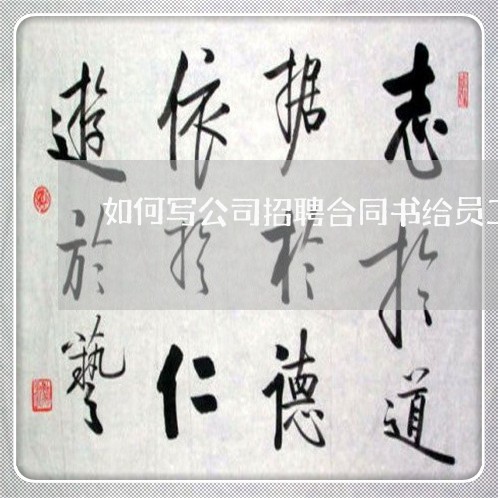 志於道
据於德
依於仁
遊於藝
如何写公司招聘合同书给员